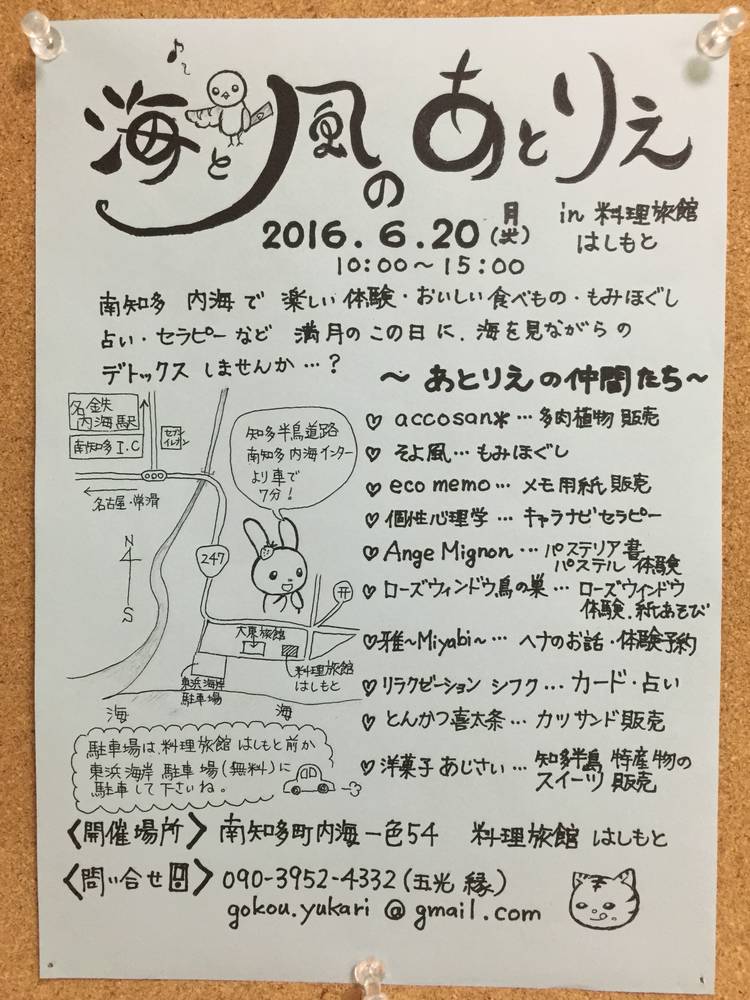 海と風のあとりえ
2016.6.20(月)
in 料理旅館
はしもと
10:00〜15:00
南知多 内海で 楽しい体験・おいしい食べもの・もみほぐし
占い・セラピーなど 満月のこの日に、海を見ながらの
デトックスしませんか…?
〜あとりえの仲間たち〜
♡ accosan* … 多肉植物 販売
♡ そよ風… もみほぐし
♡ eco memo … メモ用紙 販売
♡ 個性心理学 … キャラナビセラピー
♡ Ange Mignon … パステリア書
パステル 体験
♡ ローズウィンドウ鳥の巣 … ローズウィンドウ
体験・紙あそび
♡ 雅〜Miyabi〜 … ヘナのお話・体験予約
♡ リラクゼーション シフク … カード・占い
♡ とんかつ喜太条 … カツサンド販売
♡ 洋菓子 あじさい … 知多半島 特産物の
スイーツ 販売
名鉄
内海駅
南知多 I.C
セブン
イレブン
名古屋・常滑
N
S
知多半島道路
南知多 内海インター
より車で
7分!
247
大東旅館
料理旅館
はしもと
東浜海岸
駐車場
海
海
駐車場は、料理旅館 はしもと前か
東浜海岸 駐車場(無料)に
駐車して下さいね。
〈開催場所〉 南知多町内海一色54 料理旅館 はしもと
〈問い合せ〉 090-3952-4332(五光 縁)
gokou.yukari@gmail.com